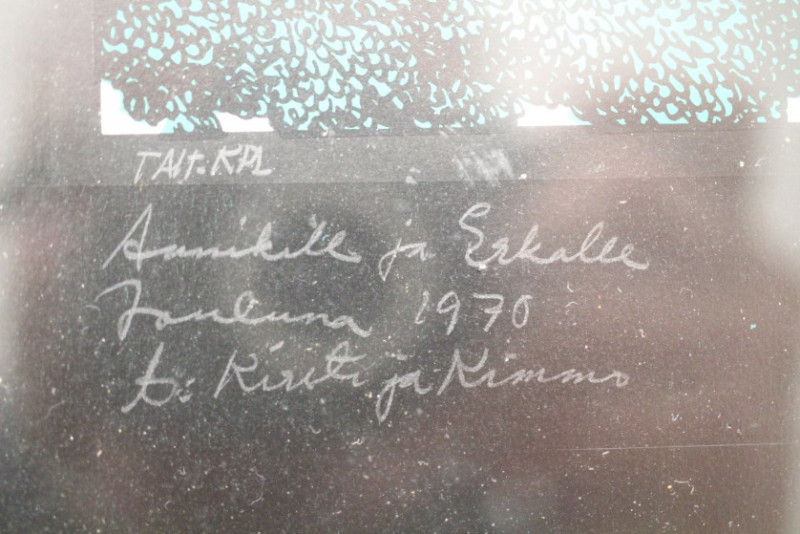 TAIT. KPL
Annikille ja Erkalle
Jouluna 1970
t: Kirsti ja Kimmo